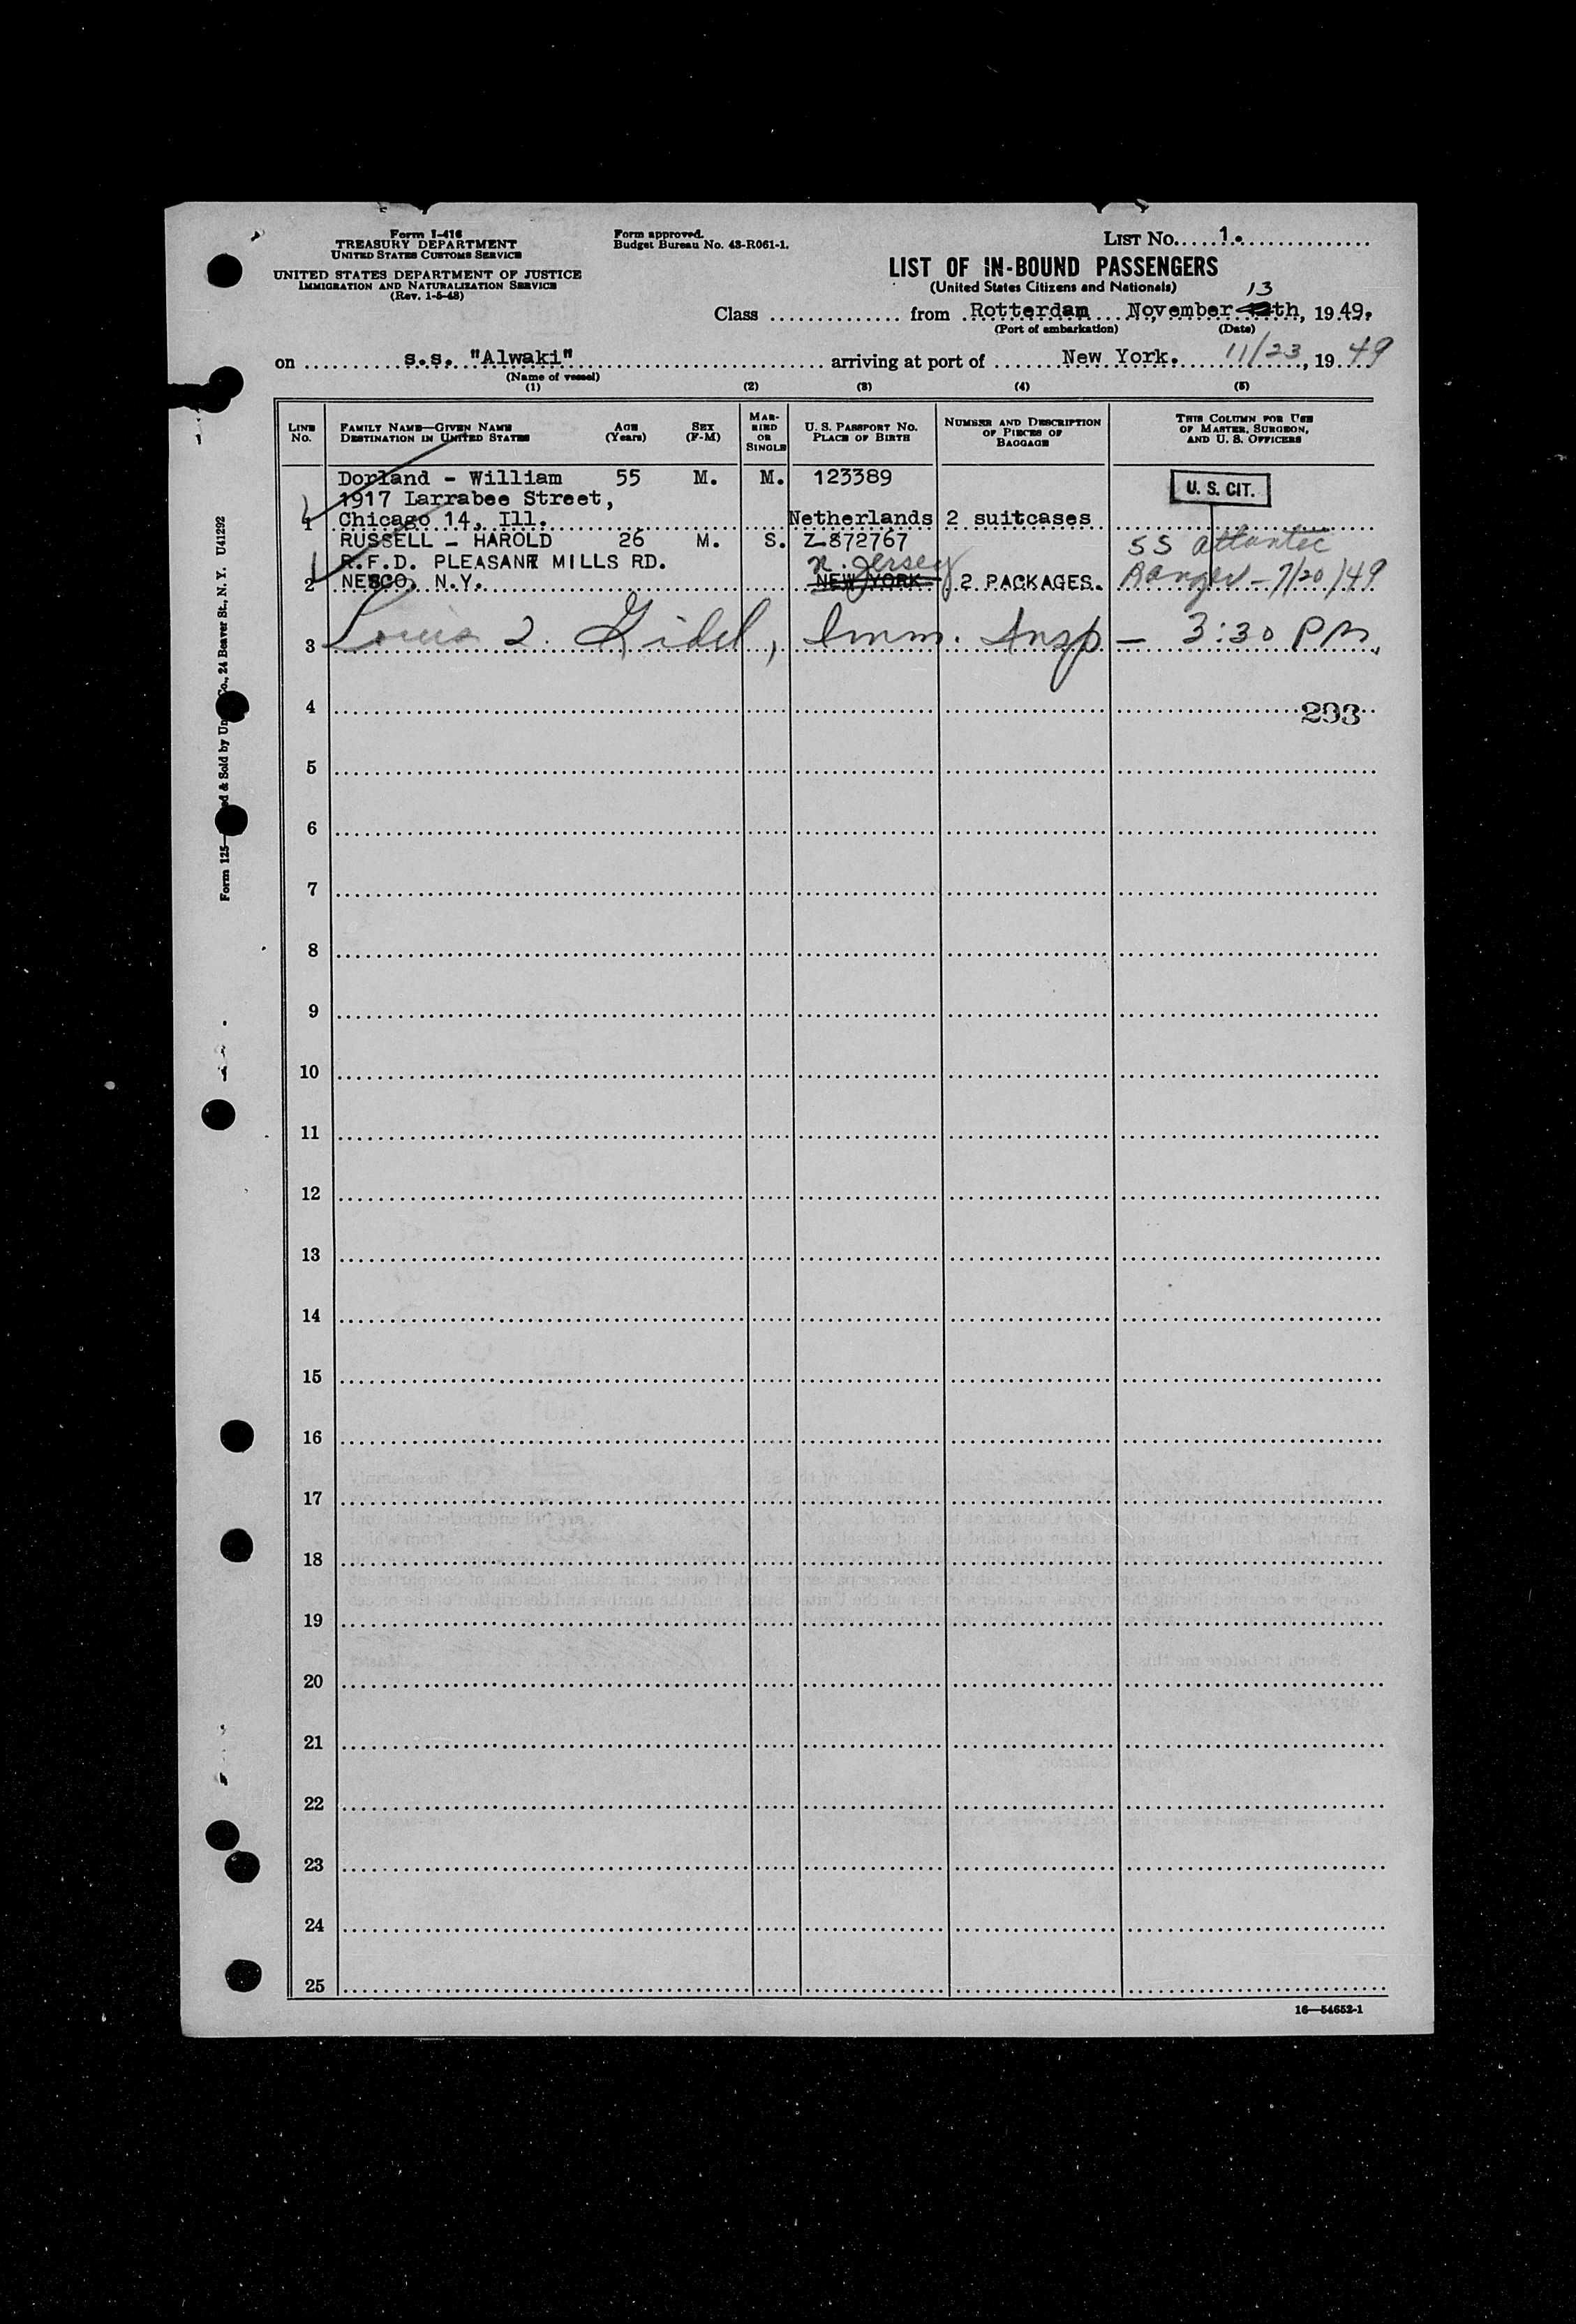 Form I-416
TREASURY DEPARTMENT
UNITED STATES CUSTOMS SERVICE
UNITED STATES DEPARTMENT OF JUSTICE
IMMIGRATION AND NATURALIZATION SERVICE
(Rev. 1-5-48)
Form approved.
Budget Bureau No. 43-R061-1.
LIST No. 1.
LIST OF IN-BOUND PASSENGERS
(United States Citizens and Nationals)
13
Class from Rotterdam November th, 1949.
(Port of embarkation) (Date)
on s.s. "Alwaki" arriving at port of New York. 11/23, 1949
(Name of vessel)
(1) (2) (3) (4) (5)
LINE No. FAMILY NAME—GIVEN NAME DESTINATION IN UNITED STATES AGE (Years) SEX (F-M) MARRIED OR SINGLE U. S. PASSPORT NO. PLACE OF BIRTH NUMBER AND DESCRIPTION OF PIECES OF BAGGAGE THIS COLUMN FOR USE OF MASTER, SURGEON, AND U. S. OFFICERS
Dorland - William 55 M. M. 123389 U. S. CIT.
1917 Larrabee Street,
1 Chicago 14, Ill. Netherlands 2 suitcases
RUSSELL - HAROLD 26 M. S. Z-872767 SS Atlantic
R.F.D. PLEASANT MILLS RD. N. Jersey
2 NESCO, N.Y. NEW YORK 2 PACKAGES. Ranger - 7/20/49
3 Louis J. Gidel, Imm. Insp - 3:30 PM.
4 293
5
6
7
8
9
10
11
12
13
14
15
16
17
18
19
20
21
22
23
24
25
16—54652-1
Form 125 & Sold by Co., 24 Beaver St., N. Y. U41292